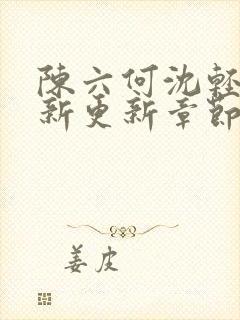 陳六何沈輕
新更新章節
姜皮